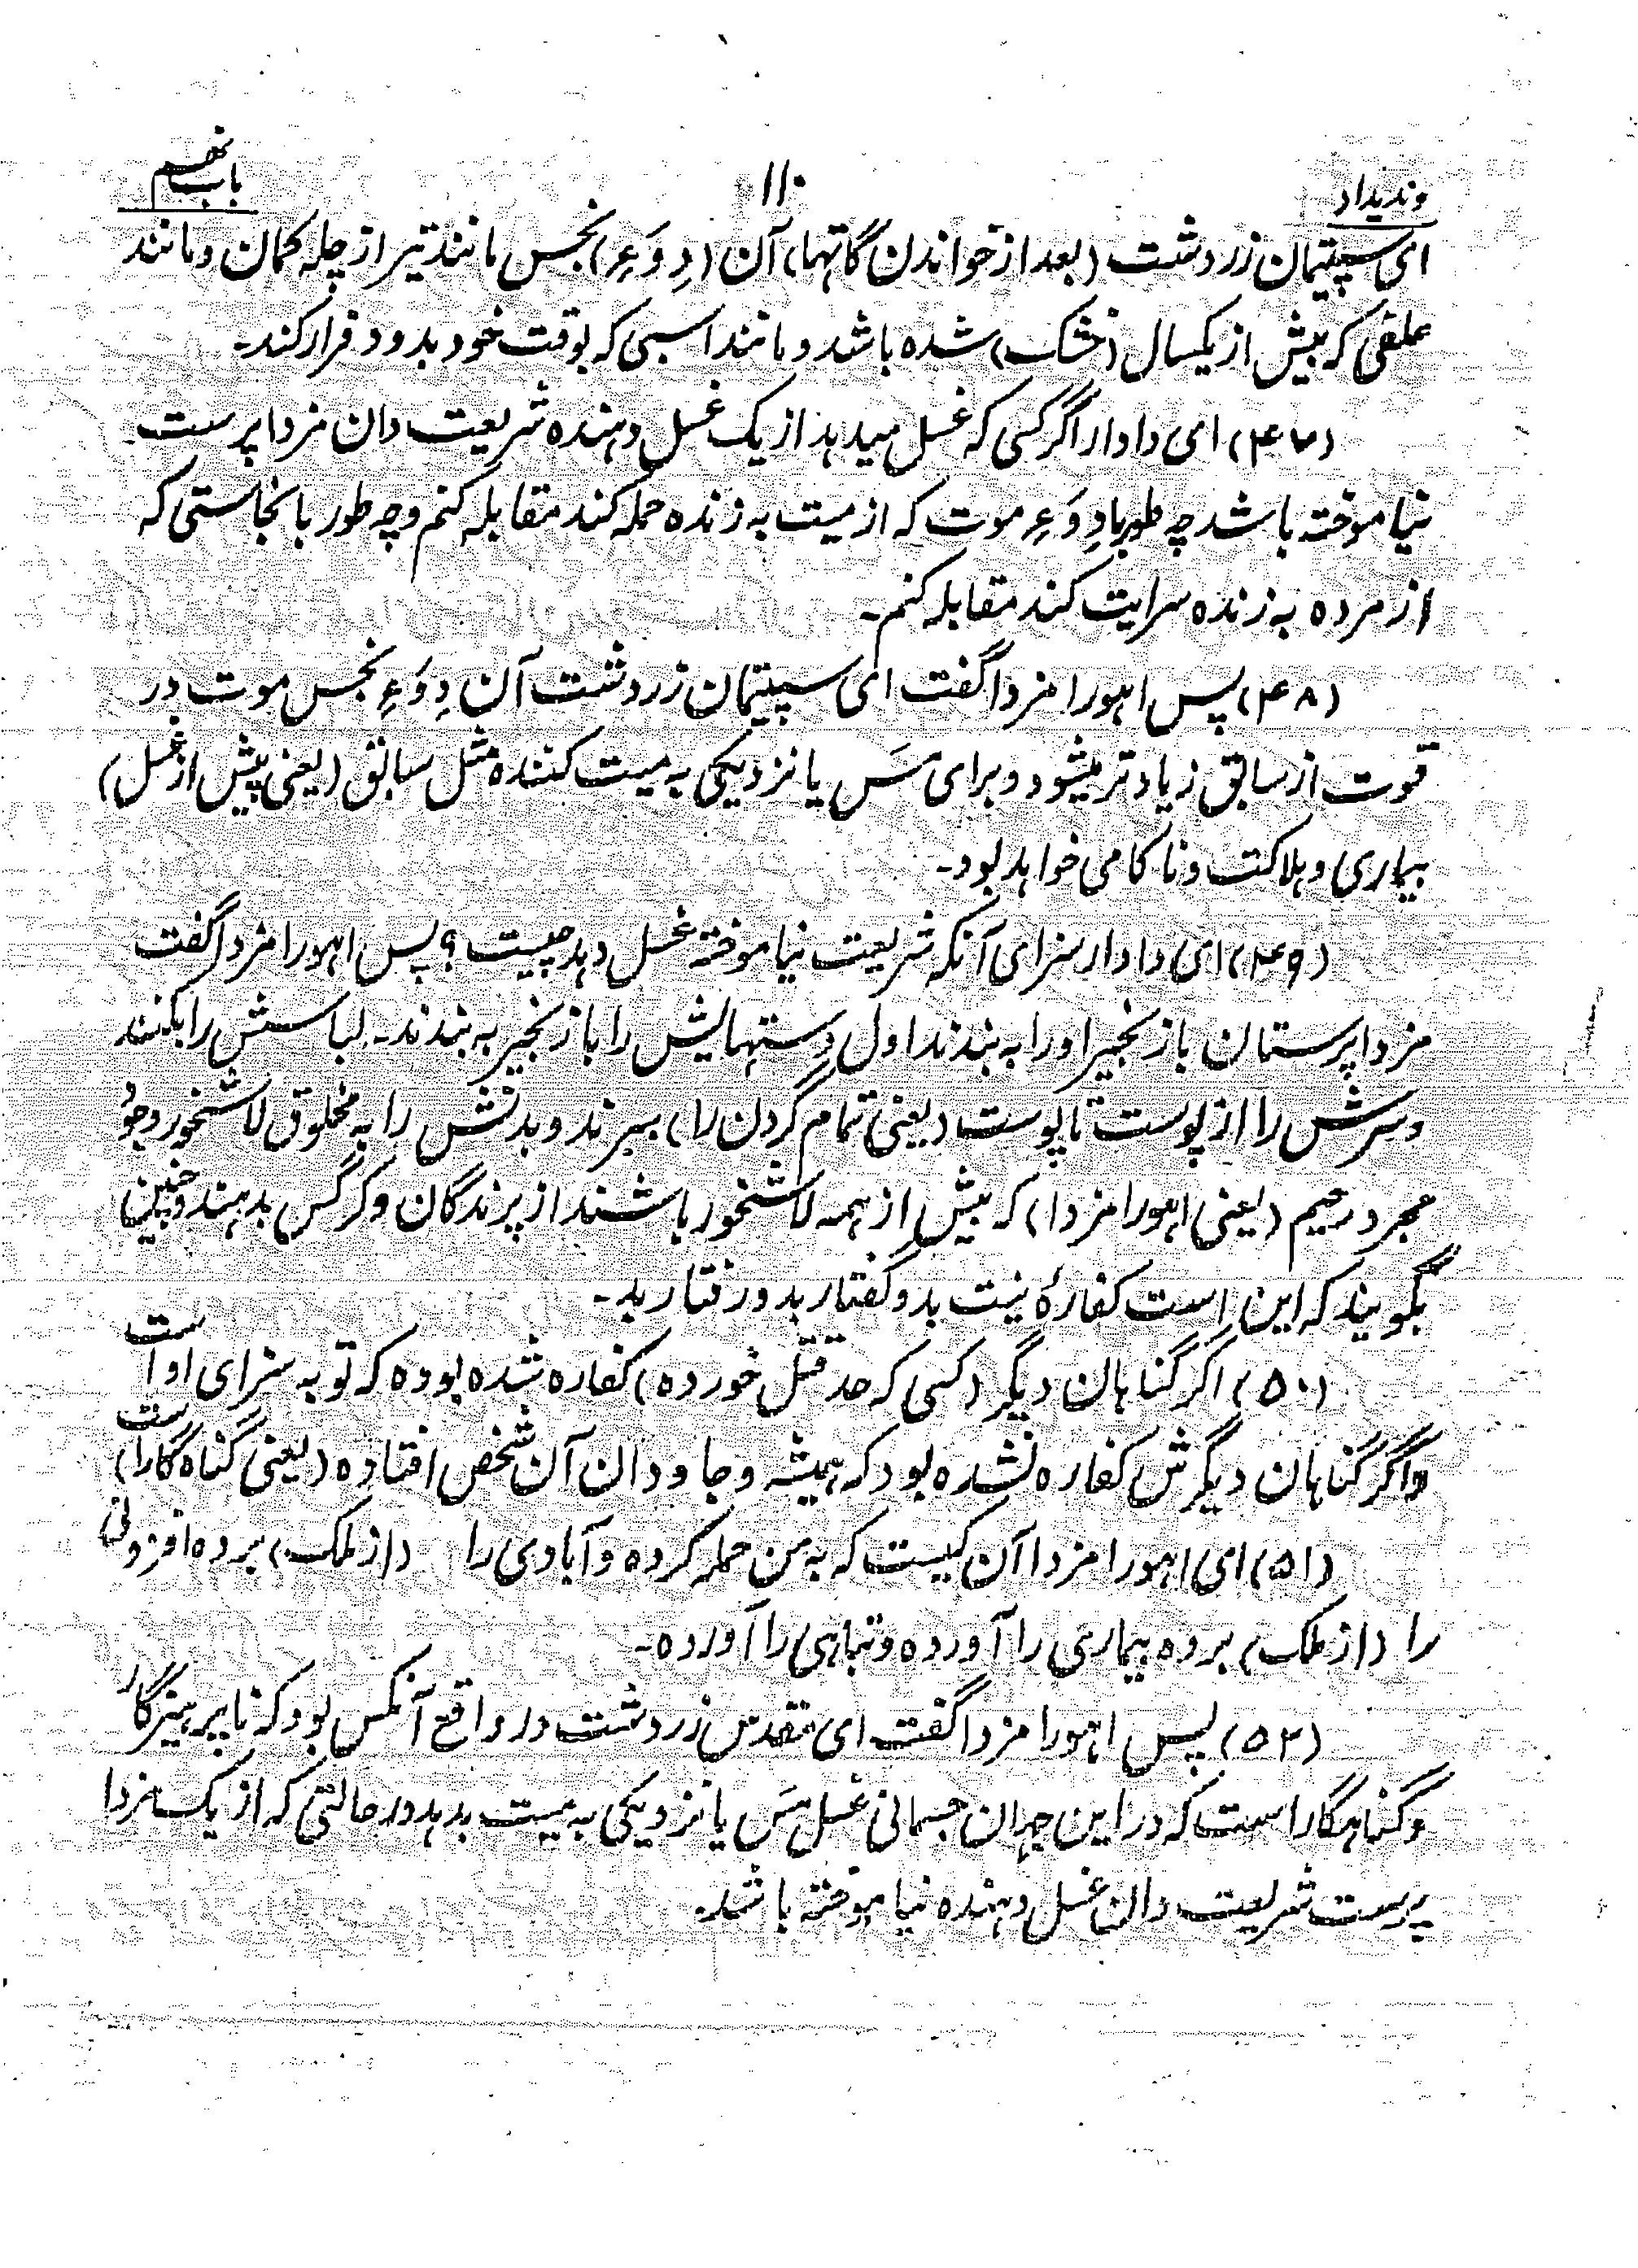 وندیداد ۱۱۰ باب نهم
ای سپیتمان زردشت (بعد از خواندن گاتها) آن (دِوَءِ) نجس مانند تیر از چله کمان و مانند
علفی که بیش از یکسال (خشک) شده باشد و مانند اسبی که بوقت خود بدود فرار کند۔
(۴۷) ای دادار اگر کسی که غسل میدهد از یک غسل دهنده شریعت دان مزدا پرست
نیاموخته باشد چه طور با دِوَءِ موت که از میت به زنده حمله کند مقابله کنم و چه طور با نجاستی که
از مرده به زنده سرایت کند مقابله کنم۔
(۴۸) پس اهورا مزدا گفت ای سپیتمان زردشت آن دِوَءِ نجس موت در
قوت از سابق زیادتر میشود و برای مَس یا نزدیکی به میت کننده مثل سابق (یعنی پیش از غسل)
بیماری و هلاکت و ناکامی خواهد بود۔
(۴۹) ای دادار سزای آنکه شریعت نیاموخته غسل دهد چیست؟ پس اهورا مزدا گفت
مزدا پرستان با زنجیر او را به بندند اول دستهایش را با زنجیر به بندند۔ لباسش را بکنند
و سرش را از پوست تا پوست (یعنی تمام گردن را) ببرند و بدنش را به مخلوق لاشخور وجود
مجرد رحیم (یعنی اهورا مزدا) که بیش از همه لاشخور باشند از پرندگان و کرگس بدهند و چنین
بگویند که این است کفارهٔ نیت بد و گفتار بد و رفتار بد۔
(۵۰) اگر گناهان دیگر (کسی که حد قتل خورده) کفاره شده بوده که توبه سزای او است
و اگر گناهان دیگرش کفاره نشده بود که همیشه و جاودان آن شخص افتاده (یعنی گناه گار است)
(۵۱) ای اهورا مزدا آن کیست که به من حمله کرده و آبادی را (از ملک) برده افزونی
را (از ملک) برده بیماری را آورده و تباهی را آورده۔
(۵۲) پس اهورا مزدا گفت ای مقدس زردشت در واقع آنکس بود که ناپرهیزگار
و گناهگار است که در این جهان جسمانی غسل مَس یا نزدیکی به میت بدهد در حالتی که از یک مزدا
پرست شریعت دان غسل دهنده نیاموخته باشد۔